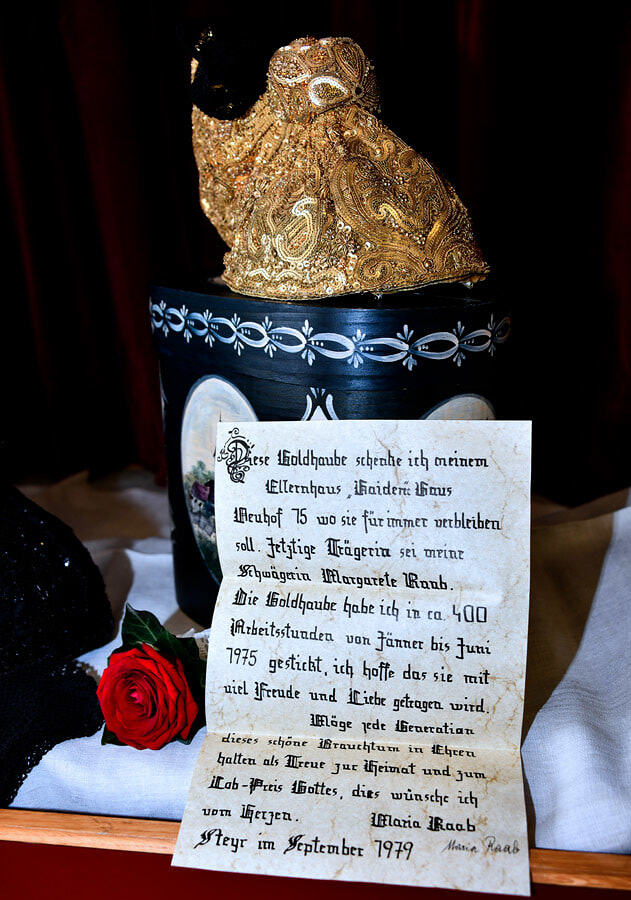 Diese Goldhaube schenke ich meinem
Elternhaus „Haiden“ Haus
Neuhof 75 wo sie für immer verbleiben
soll. Jetztige Trägerin sei meine
Schwägerin Margarete Raab.
Die Goldhaube habe ich in ca. 400
Arbeitsstunden von Jänner bis Juni
1975 gestickt, ich hoffe das sie mit
viel Freude und Liebe getragen wird.
Möge jede Generation
dieses schöne Brauchtum in Ehren
halten als Treue zur Heimat und zum
Lob-Preis Gottes, dies wünsche ich
vom Herzen. Maria Raab
Steyr im September 1979 Maria Raab